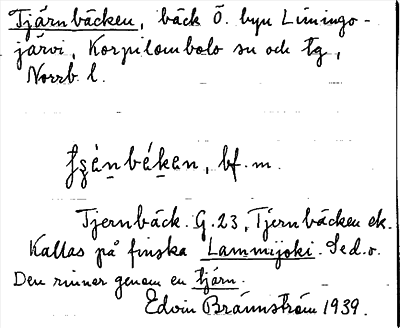 Tjärnbäcken, bäck Ö. byn Limingo-
järvi, Korpilombolo sn och tg,
Norrb. l.
bf. m.
Tjernbäck. G. 23, Tjernbäcken ek.
Kallas på finska Lammijoki. Se d. o.
Den rinner genom en tjärn.
Edvin Brännström 1939.